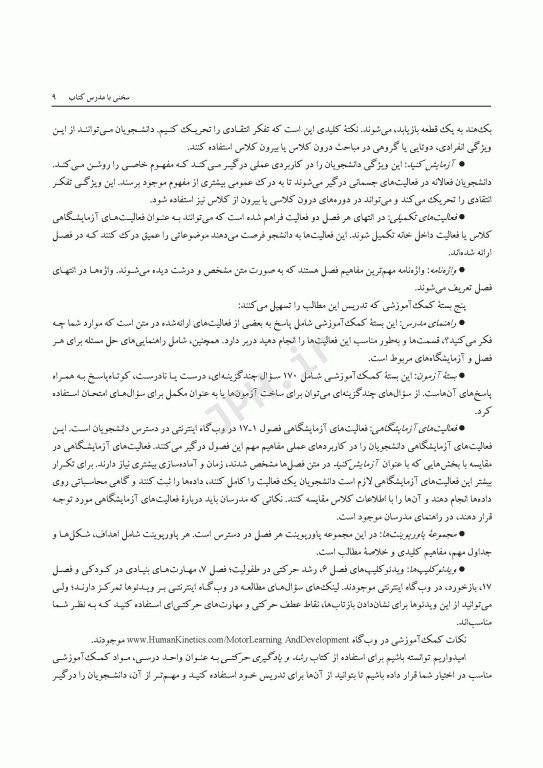 سخنی با مدرس کتاب ۹
یک‌هند به یک قطعه بازیابد، می‌شوند. نکتهٔ کلیدی این است که تفکر انتقادی را تحریک کنیم. دانشجویان می‌توانند از این
ویژگی انفرادی، دوتایی یا گروهی در مباحث درون کلاس یا بیرون کلاس استفاده کنند.
● آزمایش کنید: این ویژگی دانشجویان را در کاربردی عملی درگیر می‌کند که مفهوم خاصی را روشن می‌کند.
دانشجویان فعالانه در فعالیت‌های جسمانی درگیر می‌شوند تا به درک عمومی بیشتری از مفهوم موجود برسند. این ویژگی تفکر
انتقادی را تحریک می‌کند و می‌تواند در دوره‌های درون کلاسی یا بیرون از کلاس نیز استفاده شود.
● فعالیت‌های تکمیلی: در انتهای هر فصل دو فعالیت فراهم شده است که می‌توانند به عنوان فعالیت‌های آزمایشگاهی
کلاس یا فعالیت داخل خانه تکمیل شوند. این فعالیت‌ها به دانشجو فرصت می‌دهند موضوعاتی را عمیق درک کنند که در فصل
ارائه شده‌اند.
● واژه‌نامه: واژه‌نامه مهم‌ترین مفاهیم فصل هستند که به صورت متن مشخص و درشت دیده می‌شوند. واژه‌ها در انتهای
فصل تعریف می‌شوند.
پنج بستهٔ کمک‌آموزشی که تدریس این مطالب را تسهیل می‌کنند:
● راهنمای مدرس: این بستهٔ کمک‌آموزشی شامل پاسخ به بعضی از فعالیت‌های ارائه‌شده در متن است که موارد شما چه
فکر می‌کنید؟، قسمت‌ها و به‌طور مناسب این فعالیت‌ها را انجام دهید دربر دارد. همچنین، شامل راهنمایی‌های حل مسئله برای هر
فصل و آزمایشگاه‌های مربوط است.
● بستهٔ آزمون: این بستهٔ کمک‌آموزشی شامل ۱۷۰ سؤال چندگزینه‌ای، درست یا نادرست، کوتاه‌پاسخ به همراه
پاسخ‌های آن‌هاست. از سؤال‌های چندگزینه‌ای می‌توان برای ساخت آزمون‌ها یا به عنوان مکمل برای سؤال‌های امتحان استفاده
کرد.
● فعالیت‌های آزمایشگاهی: فعالیت‌های آزمایشگاهی فصول ۱-۱۷ در وب‌گاه اینترنتی در دسترس دانشجویان است. این
فعالیت‌های آزمایشگاهی دانشجویان را در کاربردهای عملی مفاهیم مهم این فصول درگیر می‌کنند. فعالیت‌های آزمایشگاهی در
مقایسه با بخش‌هایی که با عنوان آزمایش کنید در متن فصل‌ها مشخص شدند، زمان و آماده‌سازی بیشتری نیاز دارند. برای تکرار
بیشتر این فعالیت‌های آزمایشگاهی لازم است دانشجویان یک فعالیت را کامل کنند، داده‌ها را ثبت کنند و گاهی محاسباتی روی
داده‌ها انجام دهند و آن‌ها را با اطلاعات کلاس مقایسه کنند. نکاتی که مدرسان باید دربارهٔ فعالیت‌های آزمایشگاهی مورد توجه
قرار دهند، در راهنمای مدرسان موجود است.
● مجموعهٔ پاورپوینت‌ها: در این مجموعه پاورپوینت هر فصل در دسترس است. هر پاورپوینت شامل اهداف، شکل‌ها و
جداول مهم، مفاهیم کلیدی و خلاصهٔ مطالب است.
● ویدئوکلیپ‌ها: ویدئوکلیپ‌های فصل ۶، رشد حرکتی در طفولیت؛ فصل ۷، مهارت‌های بنیادی در کودکی و فصل
۱۷، بازخورد، در وب‌گاه اینترنتی موجودند. لینک‌های سؤال‌های مطالعه در وب‌گاه اینترنتی بر ویدئوها تمرکز دارند؛ ولی
می‌توانید از این ویدئوها برای نشان‌دادن بازتاب‌ها، نقاط عطف حرکتی و مهارت‌های حرکتی‌ای استفاده کنید که به نظر شما
مناسب‌اند.
نکات کمک‌آموزشی در وب‌گاه www.HumanKinetics.com/MotorLearning AndDevelopment موجودند.
امیدواریم توانسته باشیم برای استفاده از کتاب رشد و یادگیری حرکتی به عنوان واحد درسی، مواد کمک‌آموزشی
مناسب در اختیار شما قرار داده باشیم تا بتوانید از آن‌ها برای تدریس خود استفاده کنید و مهم‌تر از آن، دانشجویان را درگیر
JPH.ir